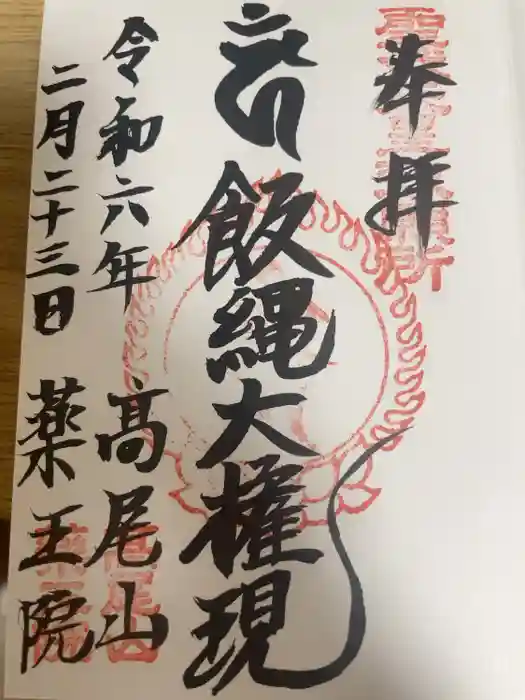 奉拝
飯縄大権現
令和六年
二月二十三日
髙尾山
薬王院